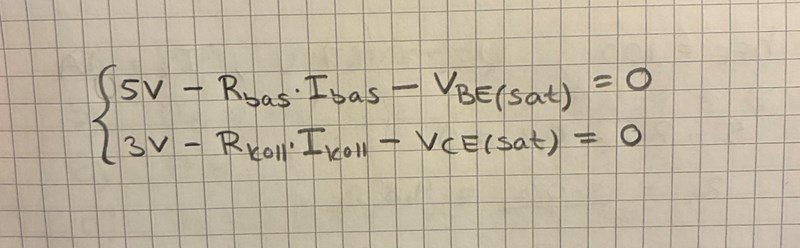 5V - Rbas · Ibas - VBE(sat) = 0
3V - Rkoll · Ikoll - VCE(sat) = 0